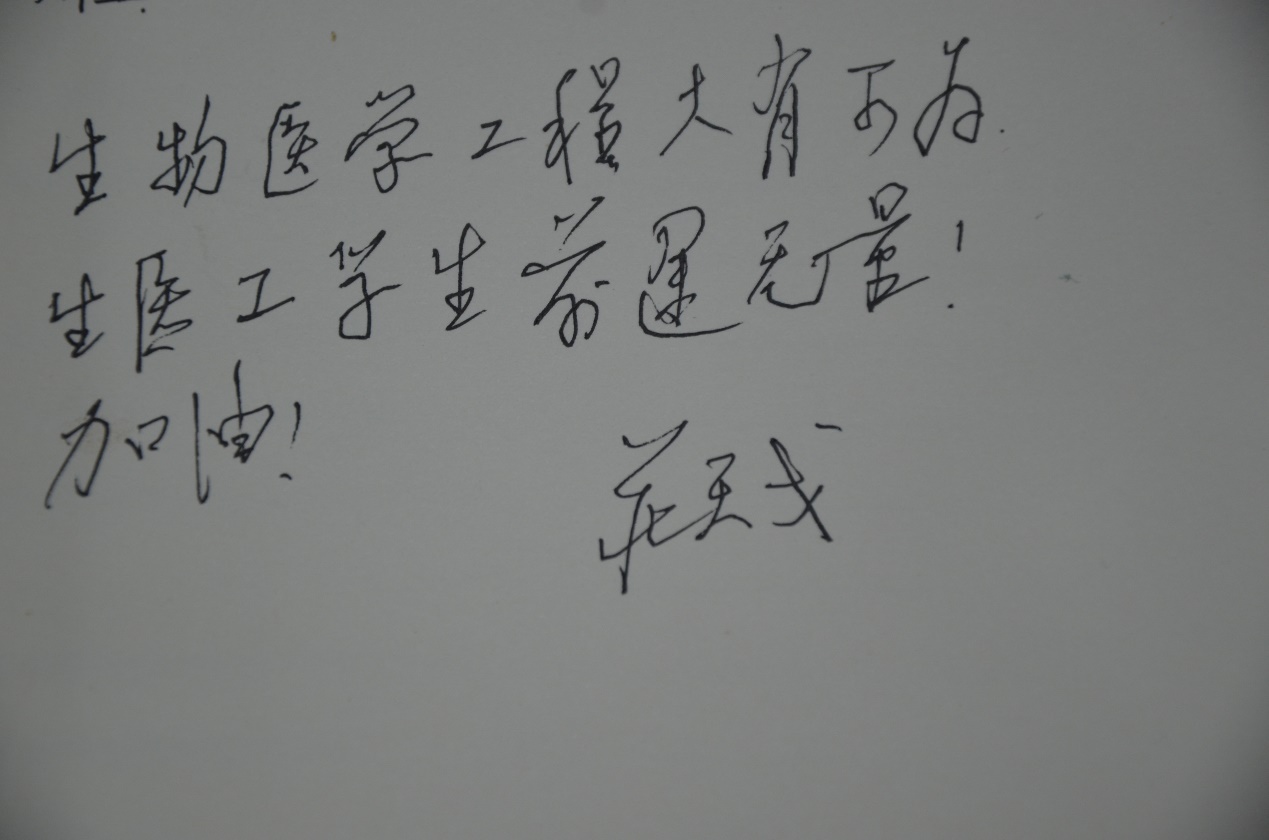 生物医学工程大有可为.
生医工学生前途无量!
加油!
庄天戈